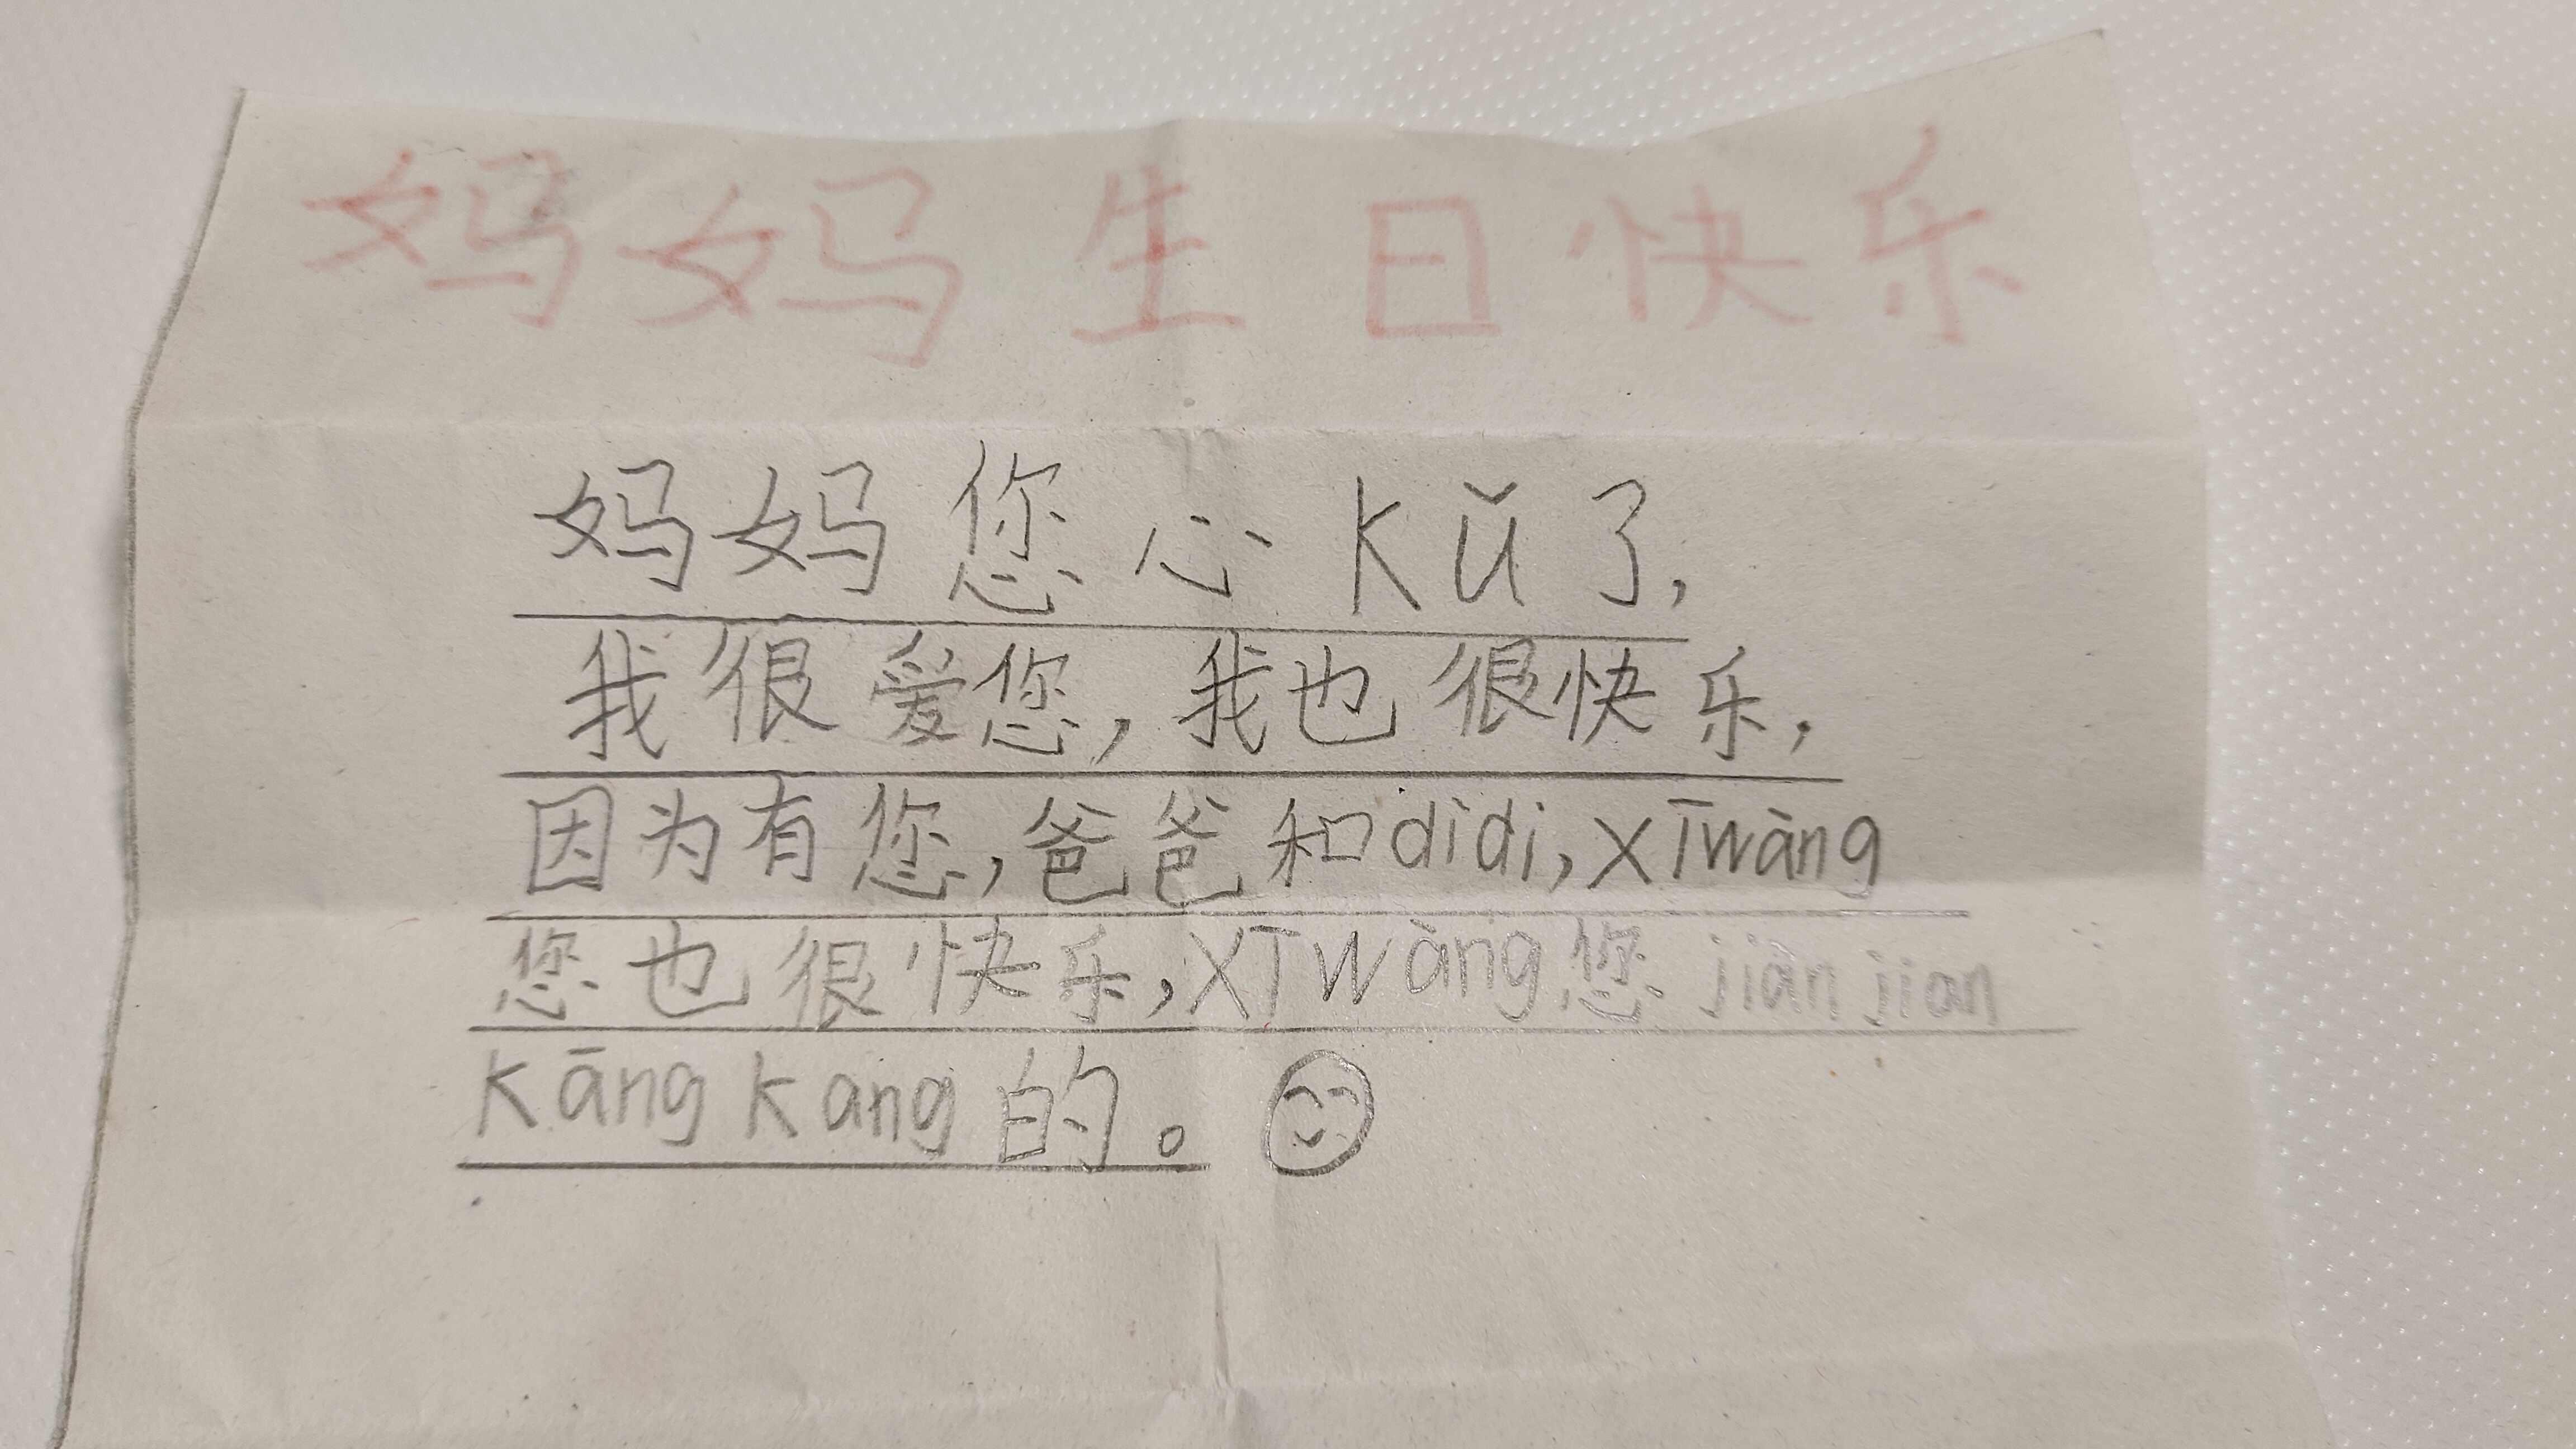 妈妈生日快乐
妈妈您心kǔ了,
我很爱您,我也很快乐,
因为有您,爸爸和dìdi,xīwàng
您也很快乐,xīwàng您jiànjian
kāngkang的。